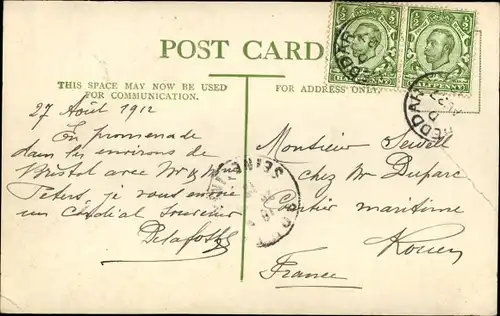 POST CARD
THIS SPACE MAY NOW BE USED
FOR COMMUNICATION.
FOR ADDRESS ONLY.
27 Août 1912
En promenade
dans les environs de
Bristol avec Mr & Mme
Peters, je vous envoie
un cordial souvenir
Delafosse
Monsieur Sewell
chez Mr Duparc
Courtier maritime
Rouen
France
CHEDDAR
SEINE